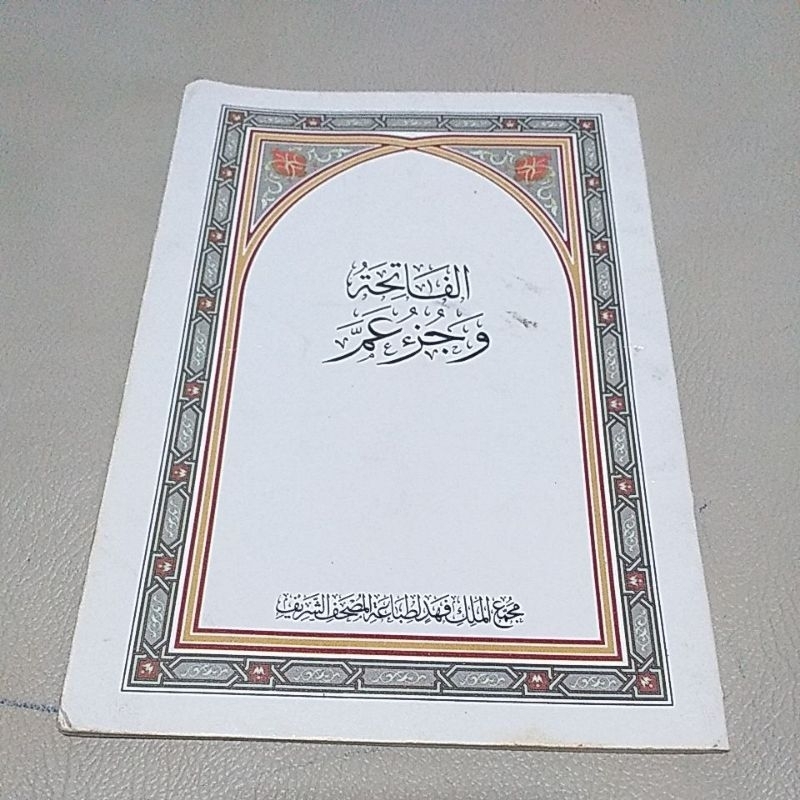 الفَاتِحَةُ
وَجُزْءُ عَمَّ
مجمع الملك فهد لطباعة المصحف الشريف